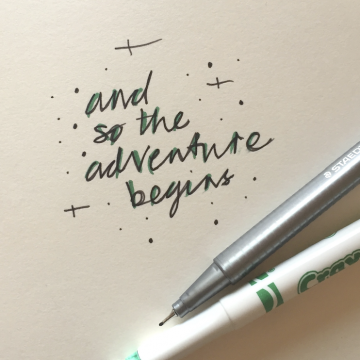 and
so the
adventure
begins
STAEDT
Cray